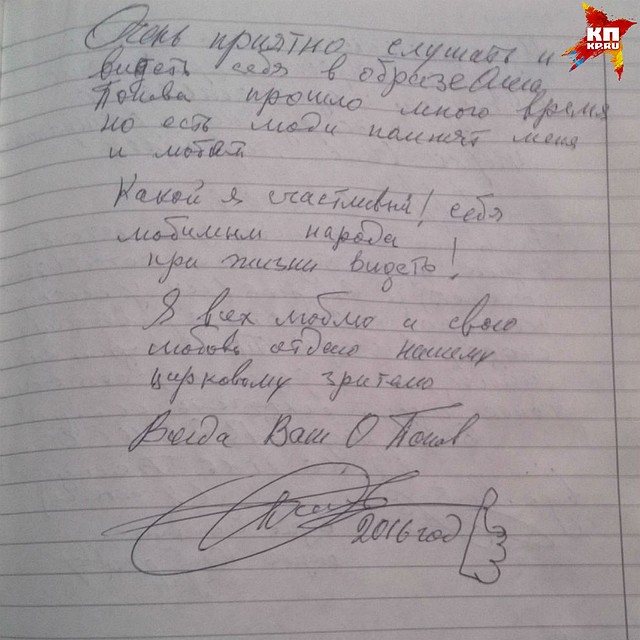 КП
KP.RU
Очень приятно слушать и
видеть себя в образе
Попова прошло много время
но есть люди помнят меня
и любят
Какой я счастливый! себя
любимым народа
при жизни видеть!
Я всех люблю и свою
любовь отдаю нашему
цирковому зрителю
Всегда Ваш О Попов
2016 год